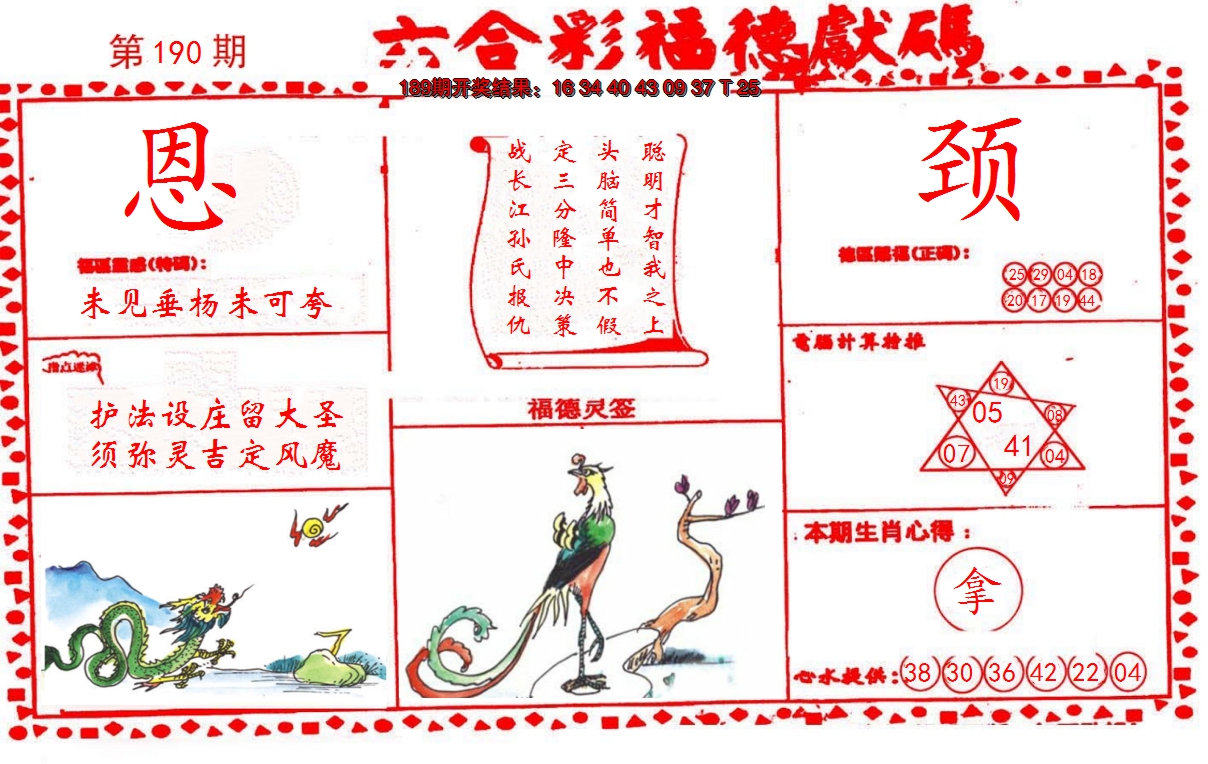 第190期
六合彩福德獻碼
189期开奖结果：16 34 40 43 09 37 T 25
恩
福區靈感(特碼)：
未见垂杨未可夸
指点迷津
护法设庄留大圣
须弥灵吉定风魔
聪明才智我之上
头脑简单也不假
定三分隆中决策
战长江孙氏报仇
福德灵签
颈
德區賜福(正碼)：
25 29 04 18
20 17 19 44
電腦計算精推
19
43 05 08
07 41 04
09
本期生肖心得：
拿
心水提供：38 30 36 42 22 04